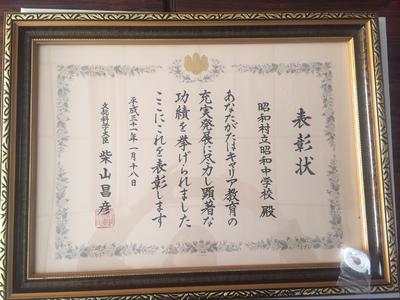 表彰状
昭和村立昭和中学校 殿
あなたがたはキャリア教育の
充実発展に尽力し顕著な
功績を挙げられました
ここにこれを表彰します
平成三十一年一月十八日
文部科学大臣 柴山昌彦